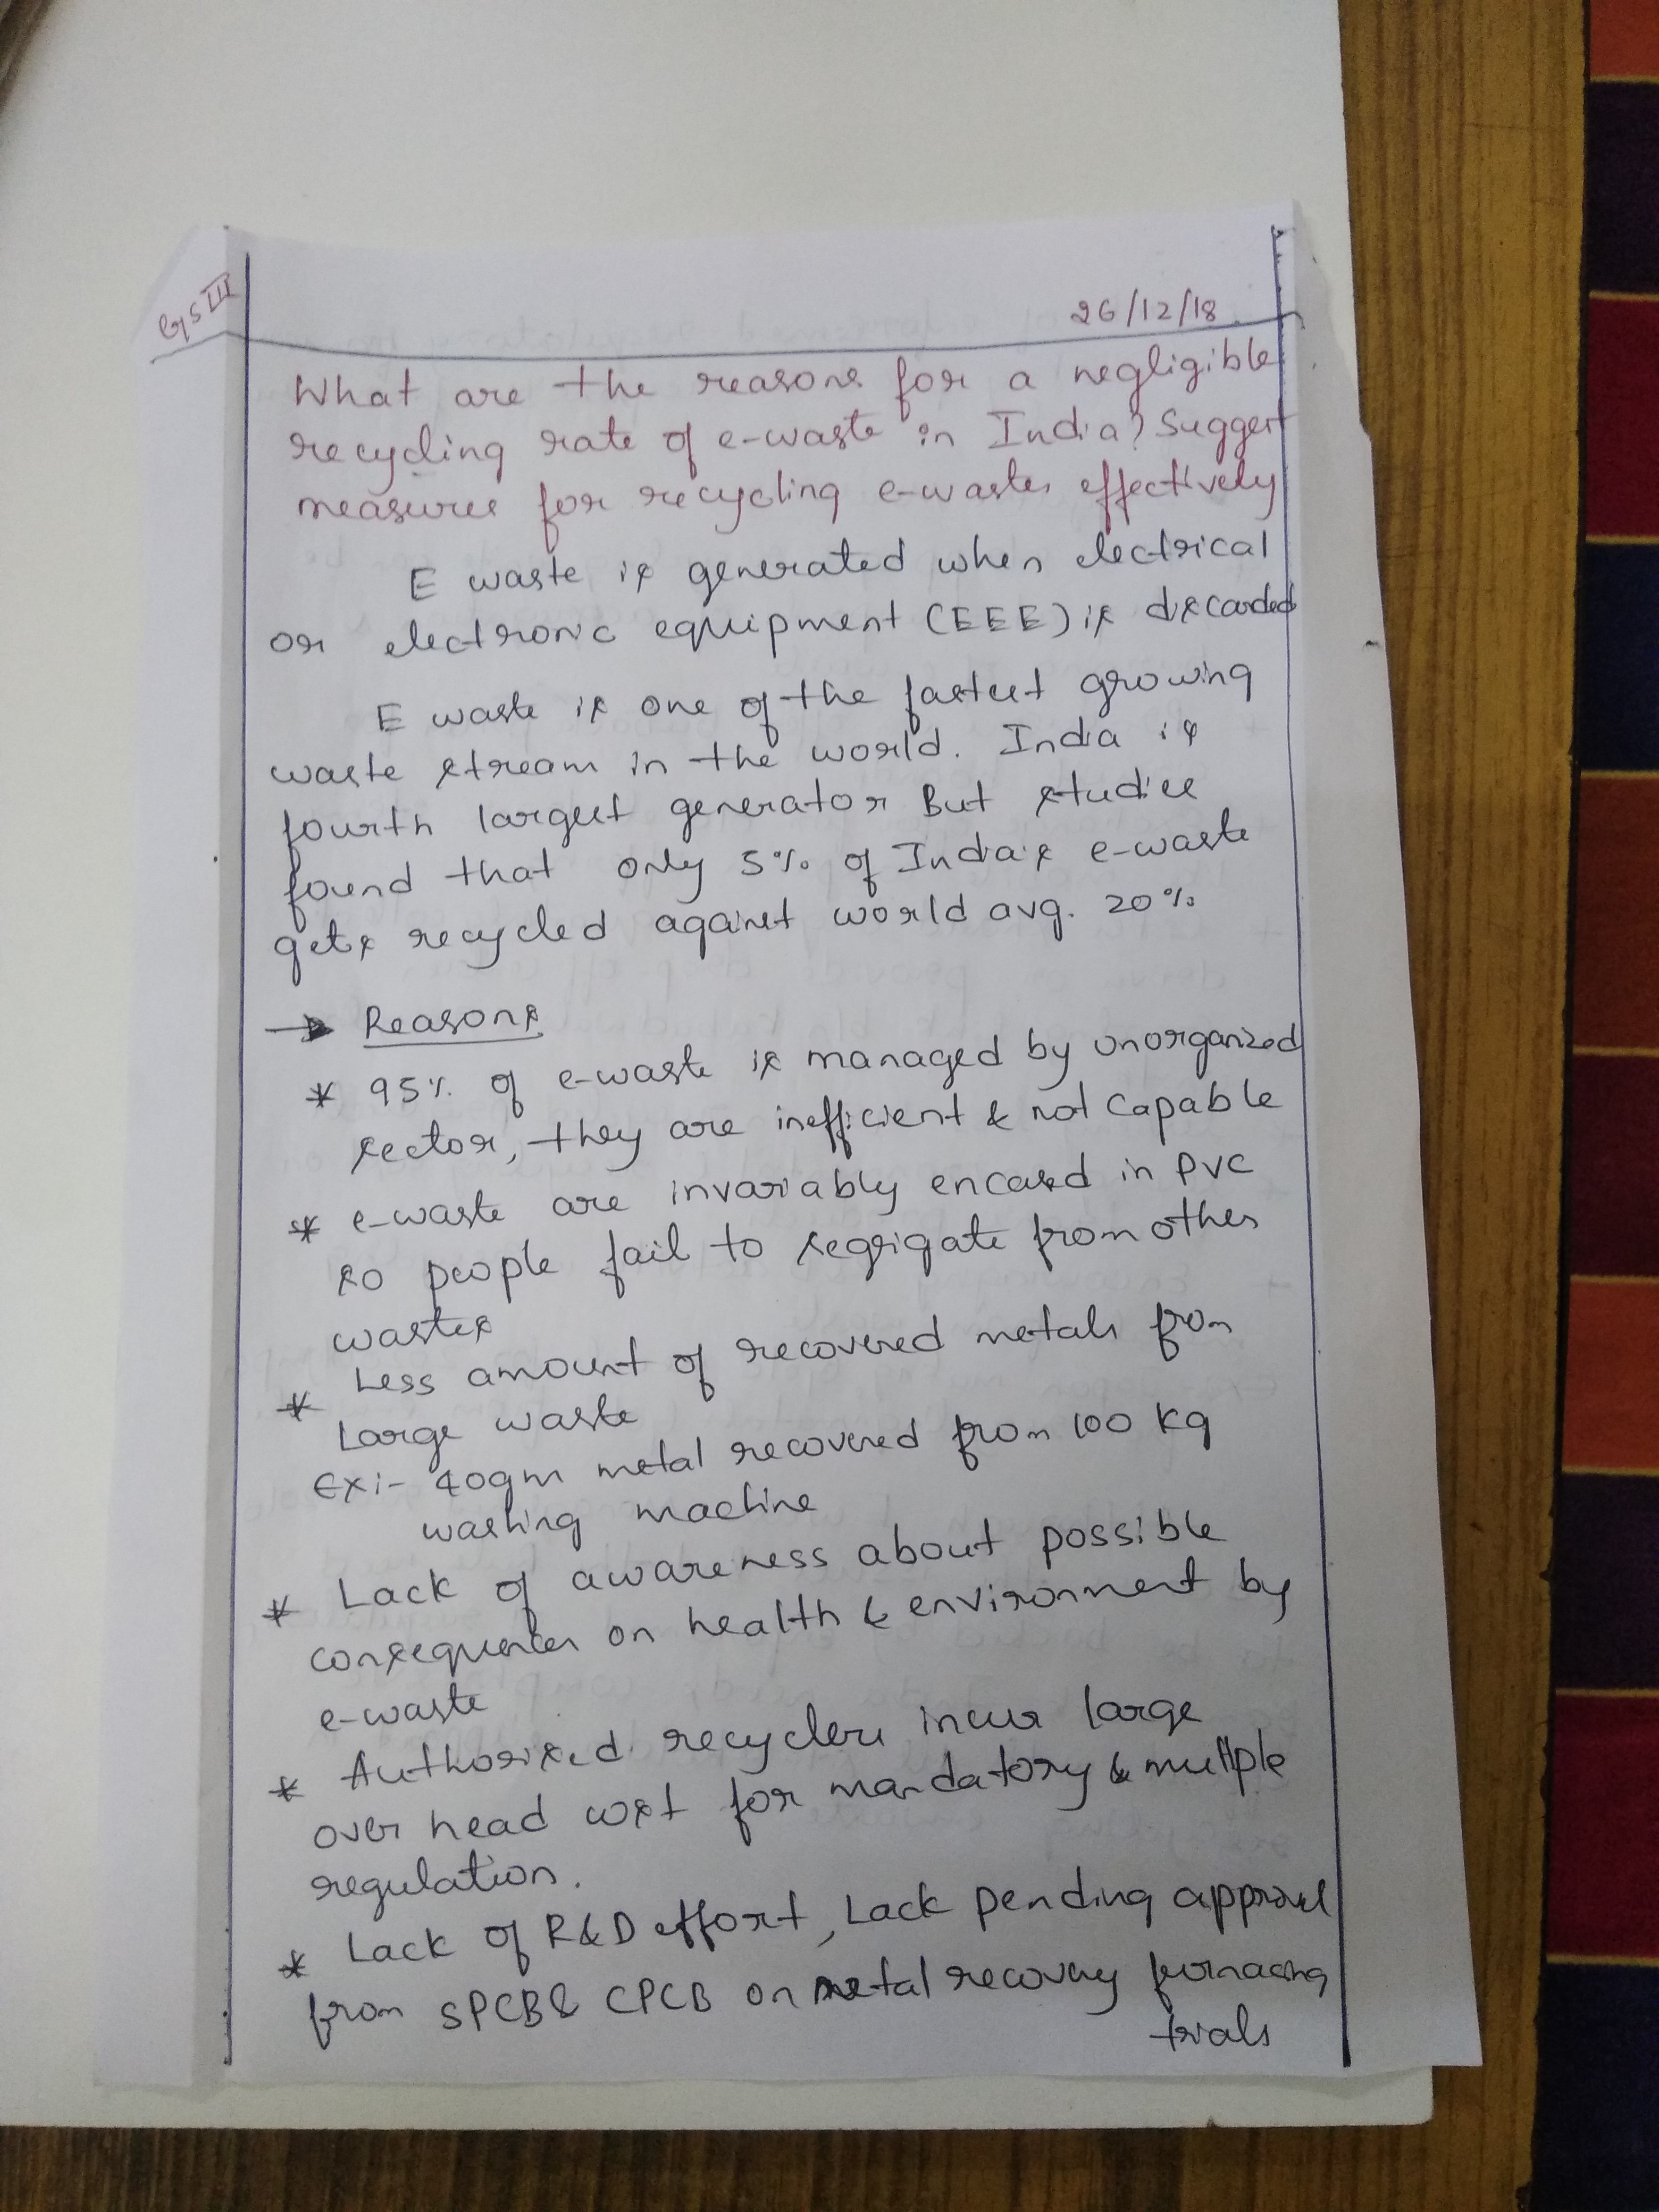 GS III
26/12/18
What are the reasons for a negligible
recycling rate of e-waste in India? Suggest
measures for recycling e-wastes effectively
E waste is generated when electrical
or electronic equipment (EEE) is discarded
E waste is one of the fastest growing
waste stream in the world. India is
fourth largest generator But studies
found that only 5% of India's e-waste
gets recycled against world avg. 20%
→ Reasons
* 95% of e-waste is managed by unorganized
sector, they are inefficient & not capable
* e-waste are invariably encased in PVC
so people fail to segrigate from other
wastes
* Less amount of recovered metals from
Large waste
Ex:- 40gm metal recovered from 100 kg
washing machine
* Lack of awareness about possible
consequences on health & environment by
e-waste
* Authorised recyclers incur large
over head cost for mandatory & multple
regulation.
* Lack of R&D effort, Lack pending approval
from SPCB & CPCB on metal recovery furnacing
trials